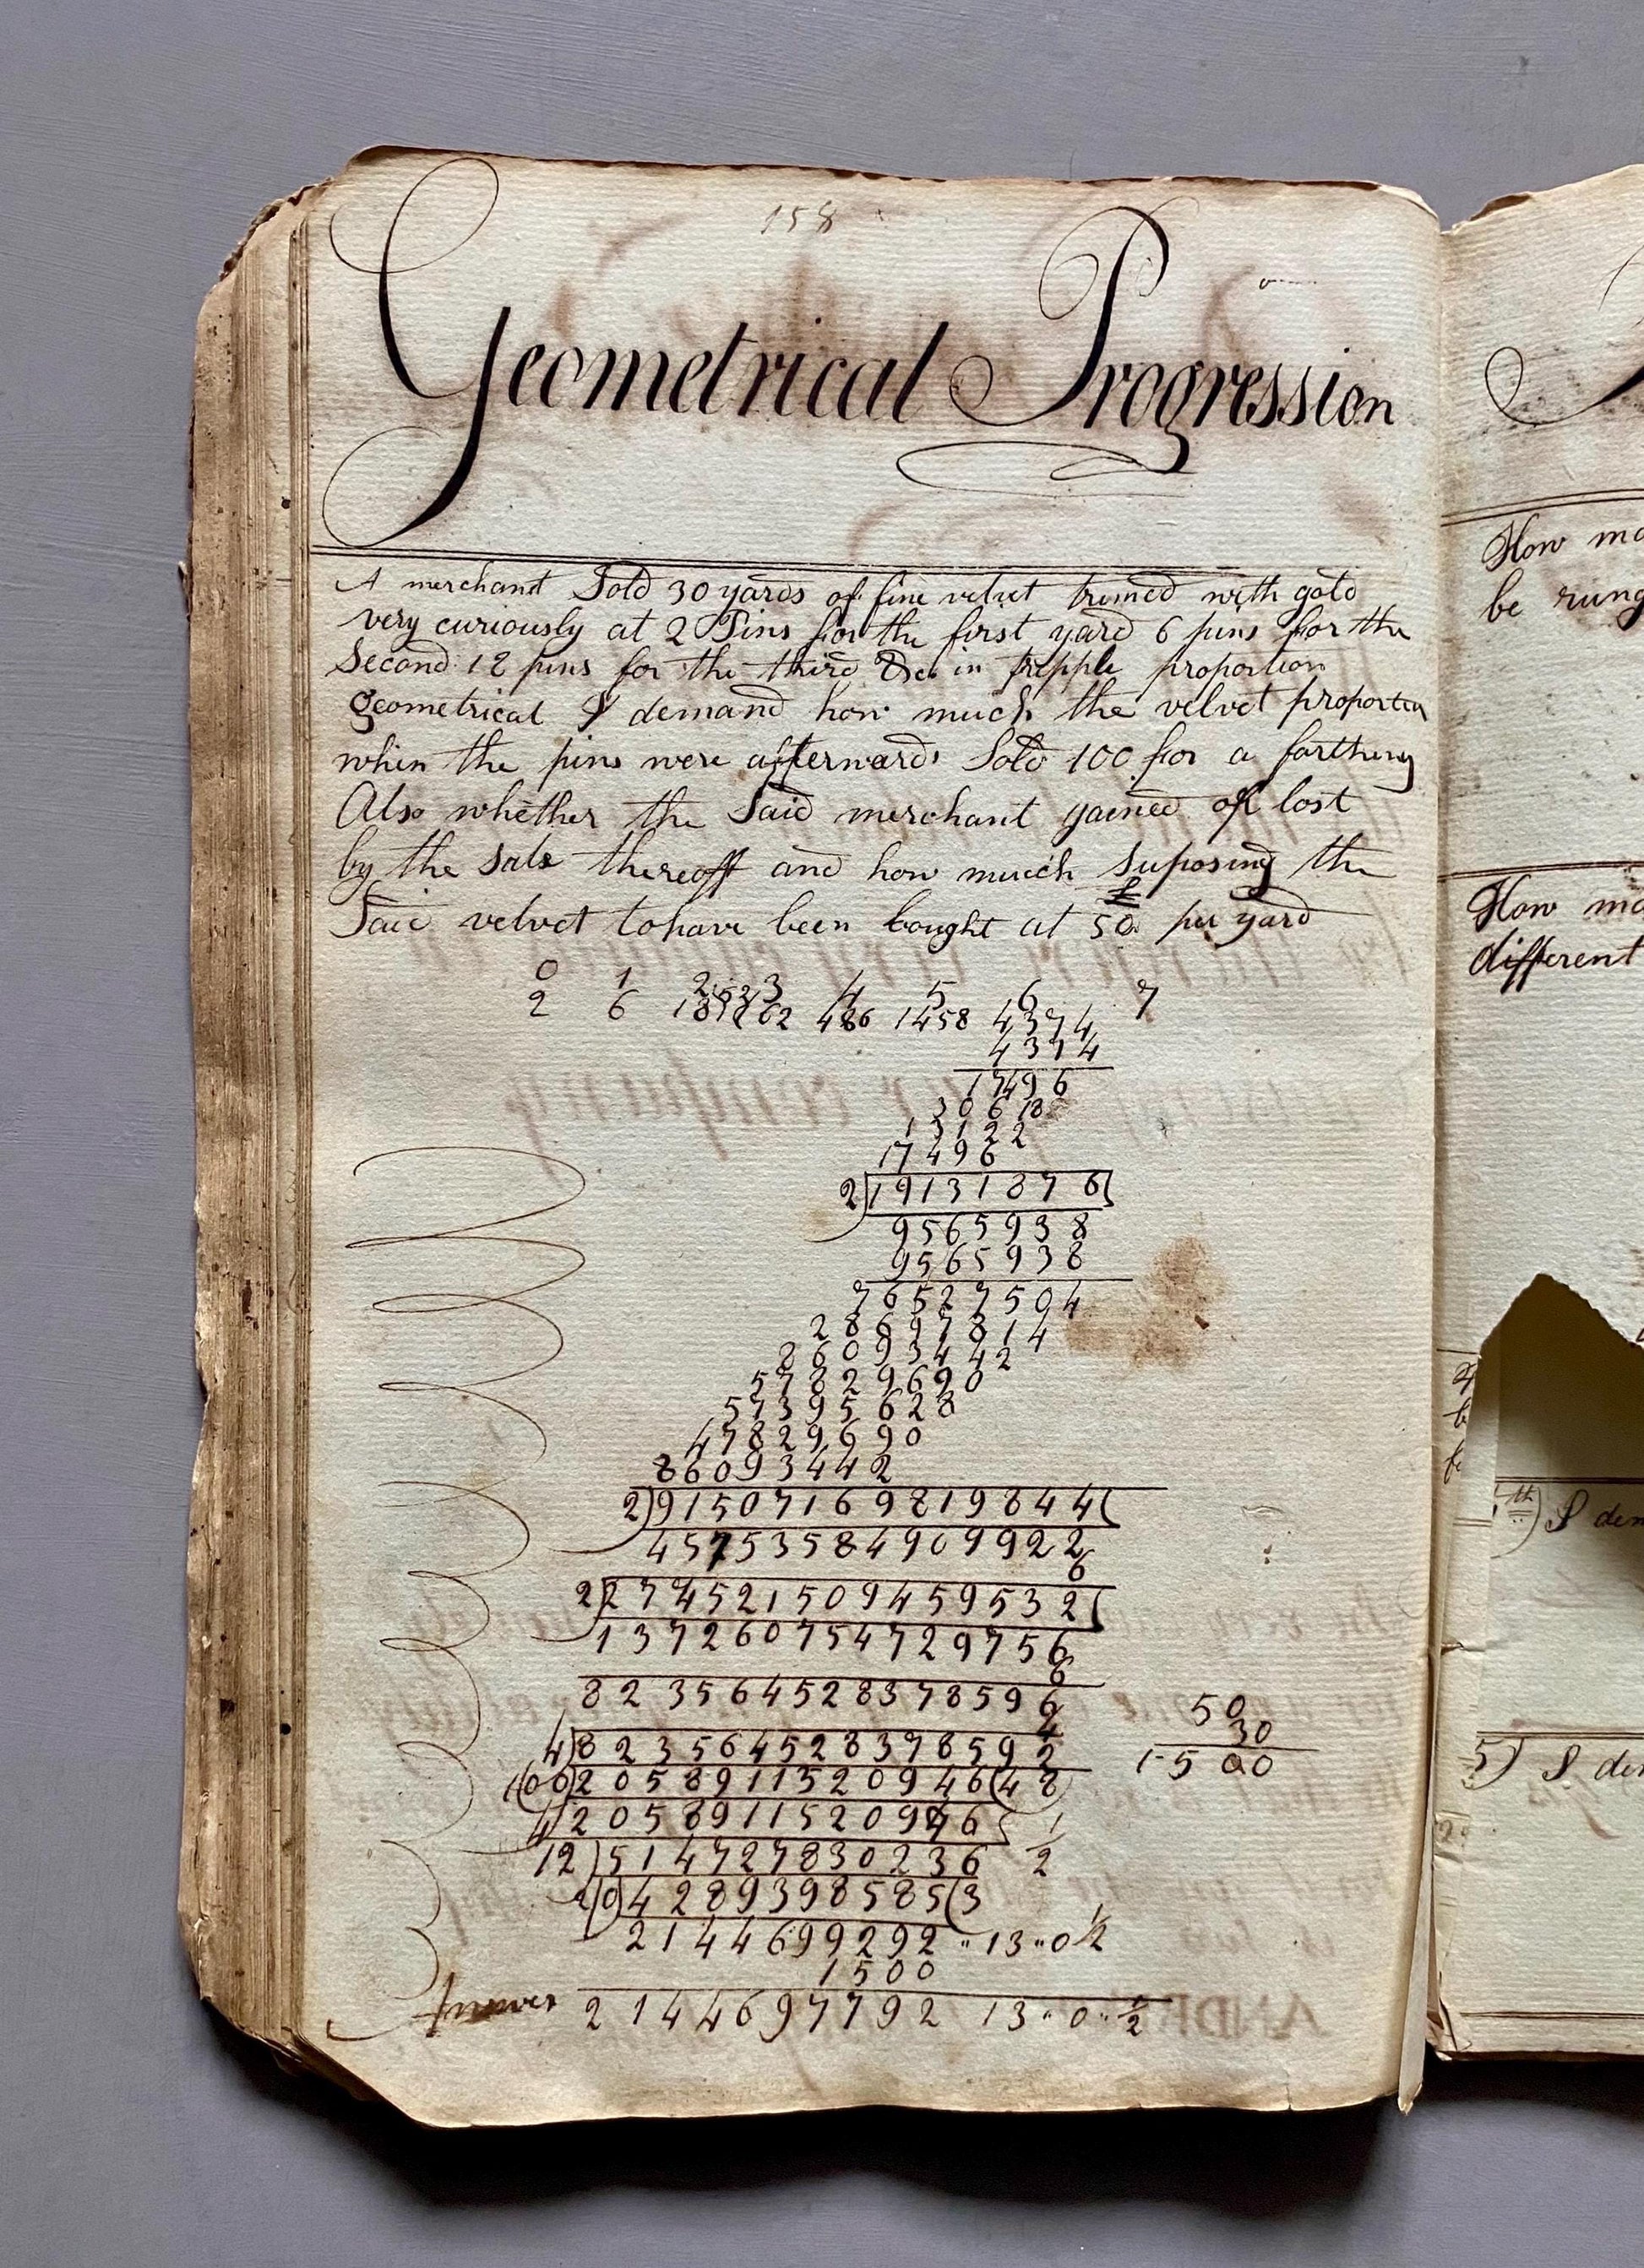 158
Geometrical Progression
A merchant Sold 30 yards of fine velvet trimed with gold
very curiously at 2 Pins for the first yard 6 pins for the
Second 18 pins for the third &c in tripple proportion
geometrical I demand how much the velvet proportion
when the pins were afterwards Sold 100 for a farthing
Also whether the Said merchant gained or lost
by the Sale thereoff and how much Suposing the
Said velvet to have been bought at 50£ per yard
0 1 2 3 4 5 6 7
2 6 18 162 486 1458 4374
4374
17496
30618
13122
17496
2)19131876(
9565938
9565938
76527504
28697814
86093442
47829690
57395628
47829690
86093442
2)91507169819844(
45753584909922
6
2)274521509459532(
137260754729756
6
823564528378596
4
4)823564528378592
100)205891132094648
4)2058911320946( 1
12)514727830236 2
20)42893985853
2144699292 " 13 " 0 1/2
1500
Answer 2144697792 13 " 0 " 1/2
50
30
1500
How
be rung
How
different
5) I